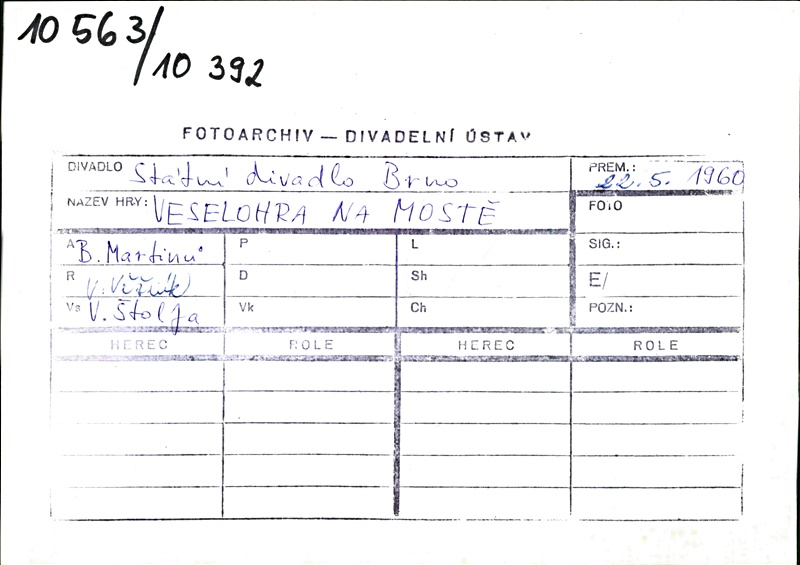 10 563/
10 392
FOTOARCHIV — DIVADELNÍ ÚSTAV
DIVADLO Státní divadlo Brno PREM.: 22. 5. 1960
NÁZEV HRY: VESELOHRA NA MOSTĚ FOTO
A B. Martinů P L SIG.:
R V. Věžník D Sh E/
Vs V. Štolfa Vk Ch POZN.:
HEREC ROLE HEREC ROLE